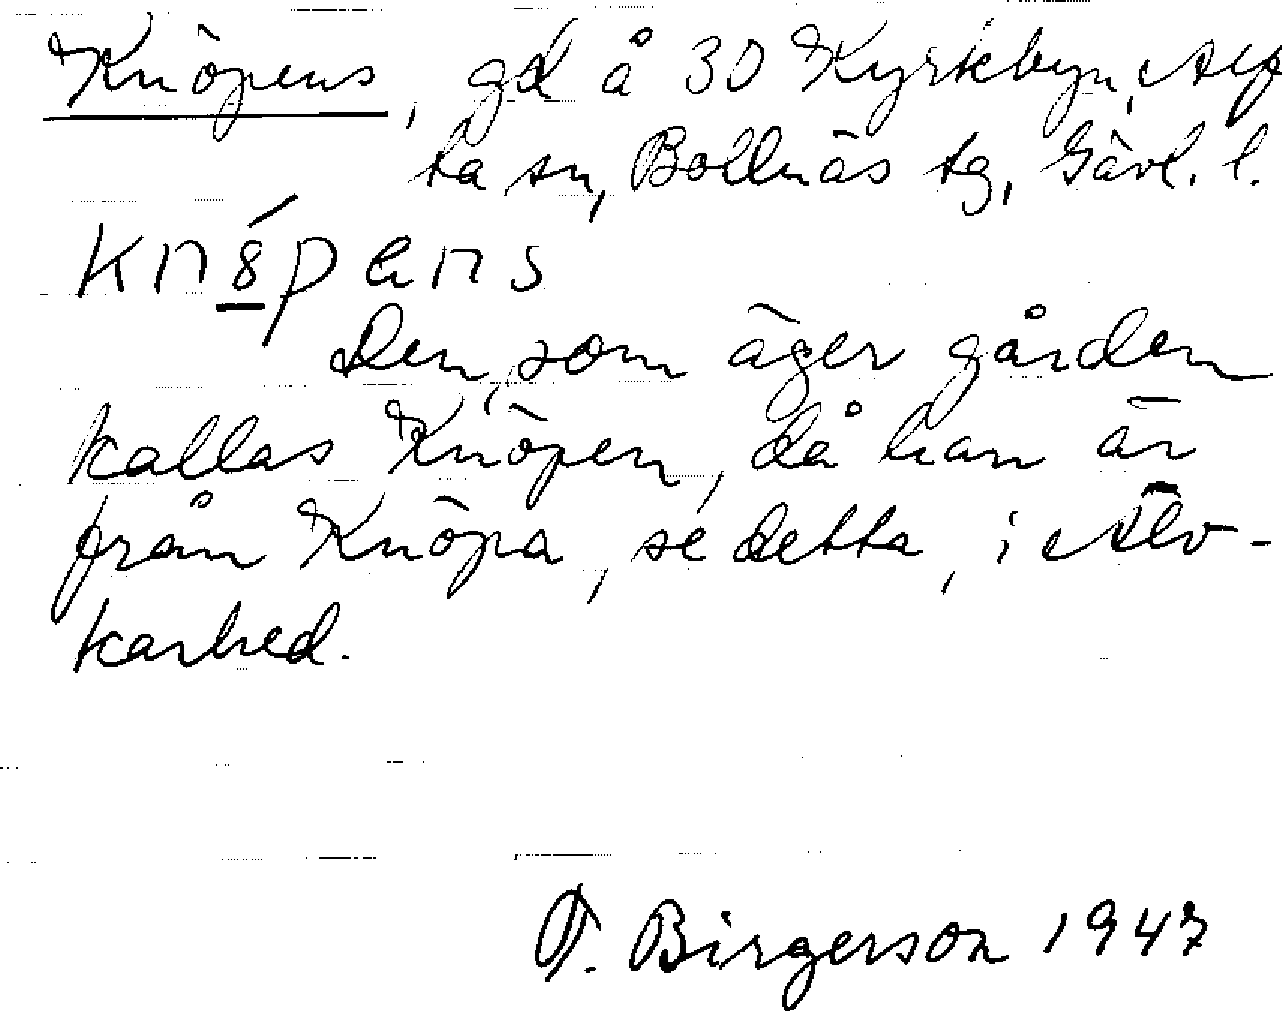 Knöpens, gd å 30 Kyrkbyn, Alf
ta sn, Bollnäs tg, Gävl. l.
kn8́pans
Den, som äger gården
kallas Knöpen, då han är
från Knöpa, se detta, i Älv-
karhed.
F. Birgerson 1947